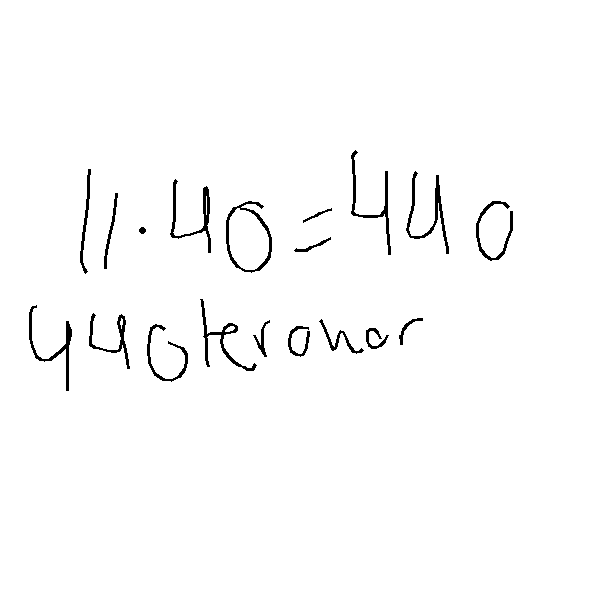 11·40=440
440kronor